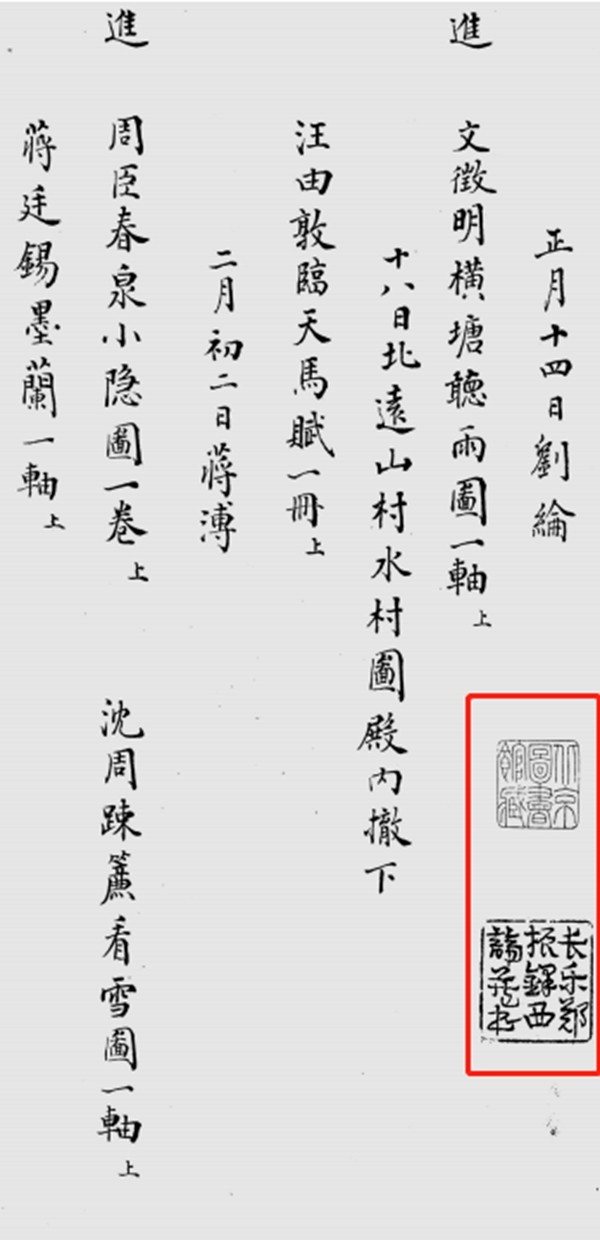 正月十四日劉綸
進 文徵明橫塘聽雨圖一軸上
十八日北遠山村水村圖殿內撤下
汪由敦臨天馬賦一冊上
二月初二日蔣溥
進 周臣春泉小隐圖一卷上 沈周踈簾看雪圖一軸上
蔣廷錫墨蘭一軸上
北京
圖書
館藏
长乐鄭
振鐸西
諦藏书